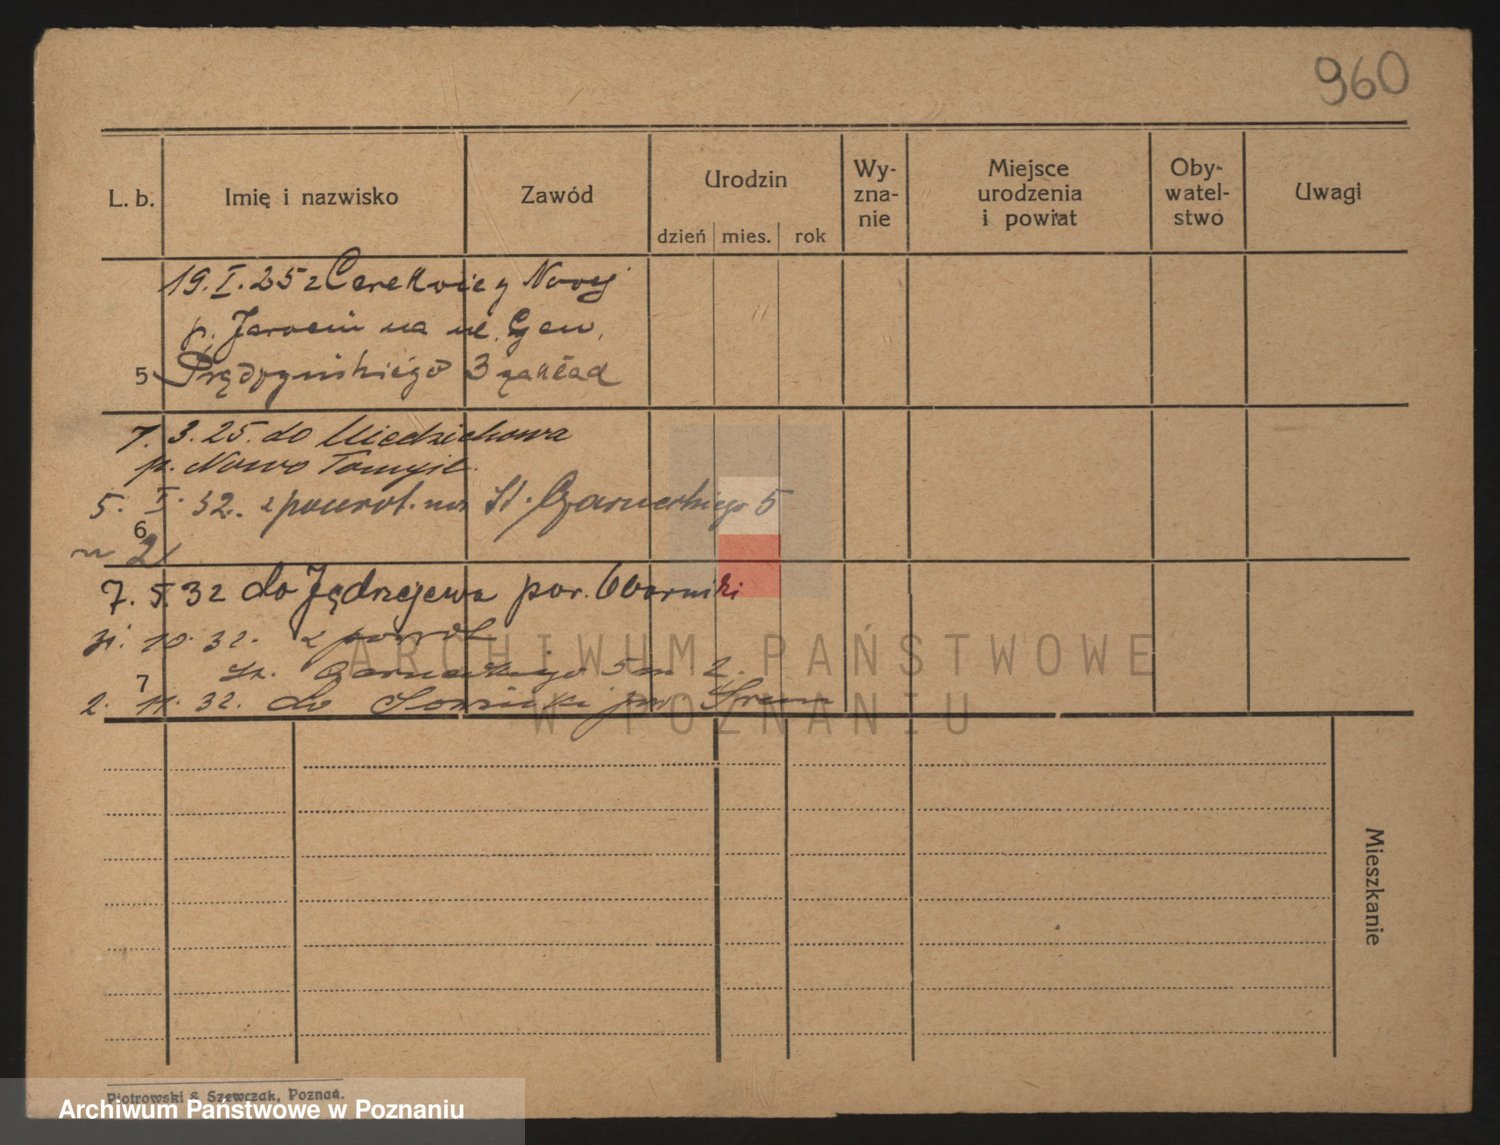 960
L. b. Imię i nazwisko Zawód Urodzin dzień mies. rok Wy-zna-nie Miejsce urodzenia i powiat Oby-watel-stwo Uwagi
19. I. 25 z Cerekwicy Nowej
p. Jarocin na ul. Gen.
5 Prądzyńskiego 3 zakład
7. 3. 25. do Miedzichowa
p. Nowo Tomyśl.
5. I. 32. z powrot. na St. Czarneckiego 5
6
m 2
7. 5. 32 do Jędrzejewa pow. Oborniki
31. 10. 32. z powrot
7 St. Czarneckiego 5 m 2.
2. 11. 32. do pow. Śrem
Mieszkanie
Piotrowski & Szewczak, Poznań.
ARCHIWUM PAŃSTWOWE
W POZNANIU
Archiwum Państwowe w Poznaniu